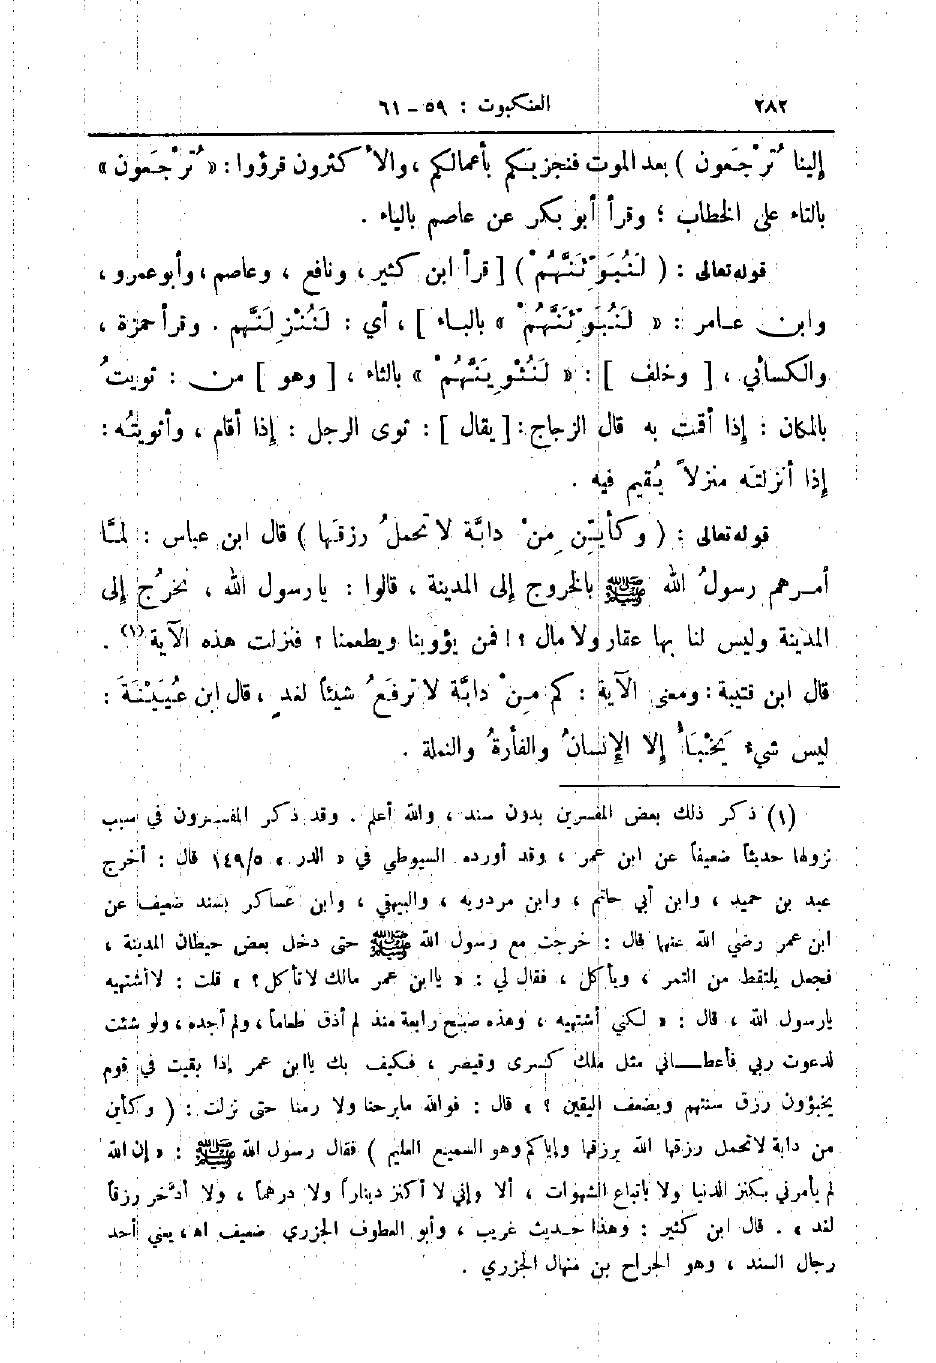 ٢٨٢ العنكبوت : ٥٩ – ٦١
إلينا تُرْجَعون ) بعد الموت فنجزيكم بأعمالكم ، والأكثرون قرؤوا : « تُرْجَعون »
بالتاء على الخطاب ؛ وقرأ أبو بكر عن عاصم بالياء .
قوله تعالى : ( لَنُبَوِّئَنَّهُمْ ) [ قرأ ابن كثير ، ونافع ، وعاصم ، وأبو عمرو ،
وابن عـامر : « لَنُبَوِّئَنَّهُمْ » بالبـاء ] ، أي : لَنُنْزِلَنَّهم . وقرأ حمزة ،
والكسائي ، [ وخلف ] : « لَنُثْوِيَنَّهُمْ » بالثاء ، [ وهو ] من : ثويتُ
بالمكان : إذا أقمت به قال الزجاج : [ يقال ] : ثوى الرجل : إذا أقام ، وأثويتُه :
إذا أنزلتَه منزلاً يُقيم فيه .
قوله تعالى : ( وكأيِّن مِنْ دابَّة لا تحملُ رزقَها ) قال ابن عباس : لمَّا
أمـرهم رسولُ الله ﷺ بالخروج إلى المدينة ، قالوا : يا رسول الله ، نخرُج إلى
المدينة وليس لنا بها عقار ولا مال ؟ ! فمن يؤوينا ويطعمنا ؟ فنزلت هذه الآية (١) .
قال ابن قتيبة : ومعنى الآية : كم مِنْ دابَّة لا ترفعُ شيئاً لغدٍ ، قال ابن عُيَيْنَةَ :
ليس شيء يَخْبَأُ إلا الإنسانُ والفأرةُ والنملة .
(١) ذكر ذلك بعض المفسرين بدون سند ، والله أعلم . وقد ذكر المفسرون في سبب
نزولها حديثاً ضعيفاً عن ابن عمر ، وقد أورده السيوطي في « الدر » ١٤٩/٥ قال : أخرج
عبد بن حميد ، وابن أبي حاتم ، وابن مردويه ، والبيهقي ، وابن عساكر بسند ضعيف عن
ابن عمر رضي الله عنهما قال : خرجت مع رسول الله ﷺ حتى دخل بعض حيطان المدينة ،
فجعل يلتقط من التمر ، ويأكل ، فقال لي : « يا ابن عمر مالك لا تأكل ؟ » قلت : لا أشتهيه
يا رسول الله ، قال : « لكني أشتهيه ، وهذه صبح رابعة منذ لم أذق طعاماً ، ولم أجده ، ولو شئت
لدعوت ربي فأعطـاني مثل ملك كسرى وقيصر ، فكيف بك يا ابن عمر إذا بقيت في قوم
يخبؤون رزق سنتهم ويضعف اليقين ؟ » قال : فوالله ما برحنا ولا رمنا حتى نزلت : ( وكأين
من دابة لا تحمل رزقها الله يرزقها وإياكم وهو السميع العليم ) فقال رسول الله ﷺ : « إن الله
لم يأمرني بكنز الدنيا ولا باتباع الشهوات ، ألا وإني لا أكنز ديناراً ولا درهماً ، ولا أدَّخر رزقاً
لغد » . قال ابن كثير : وهذا حـديث غريب ، وأبو العطوف الجزري ضعيف اه‍ ، يعني أحد
رجال السند ، وهو الجراح بن منهال الجزري .